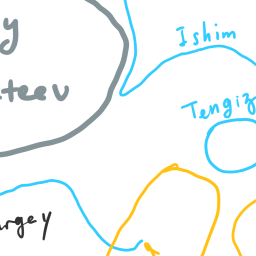 y
teev
Ishim
Tengiz
rgey